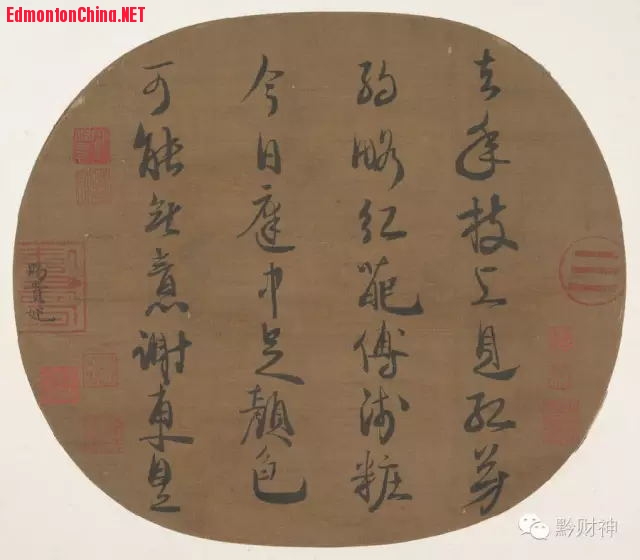 EdmontonChina.NET
去年枝上見紅芳
約略紅葩傅淺粧
今日庭中足顏色
可能無意謝東皇
賜貴妃
黔财神